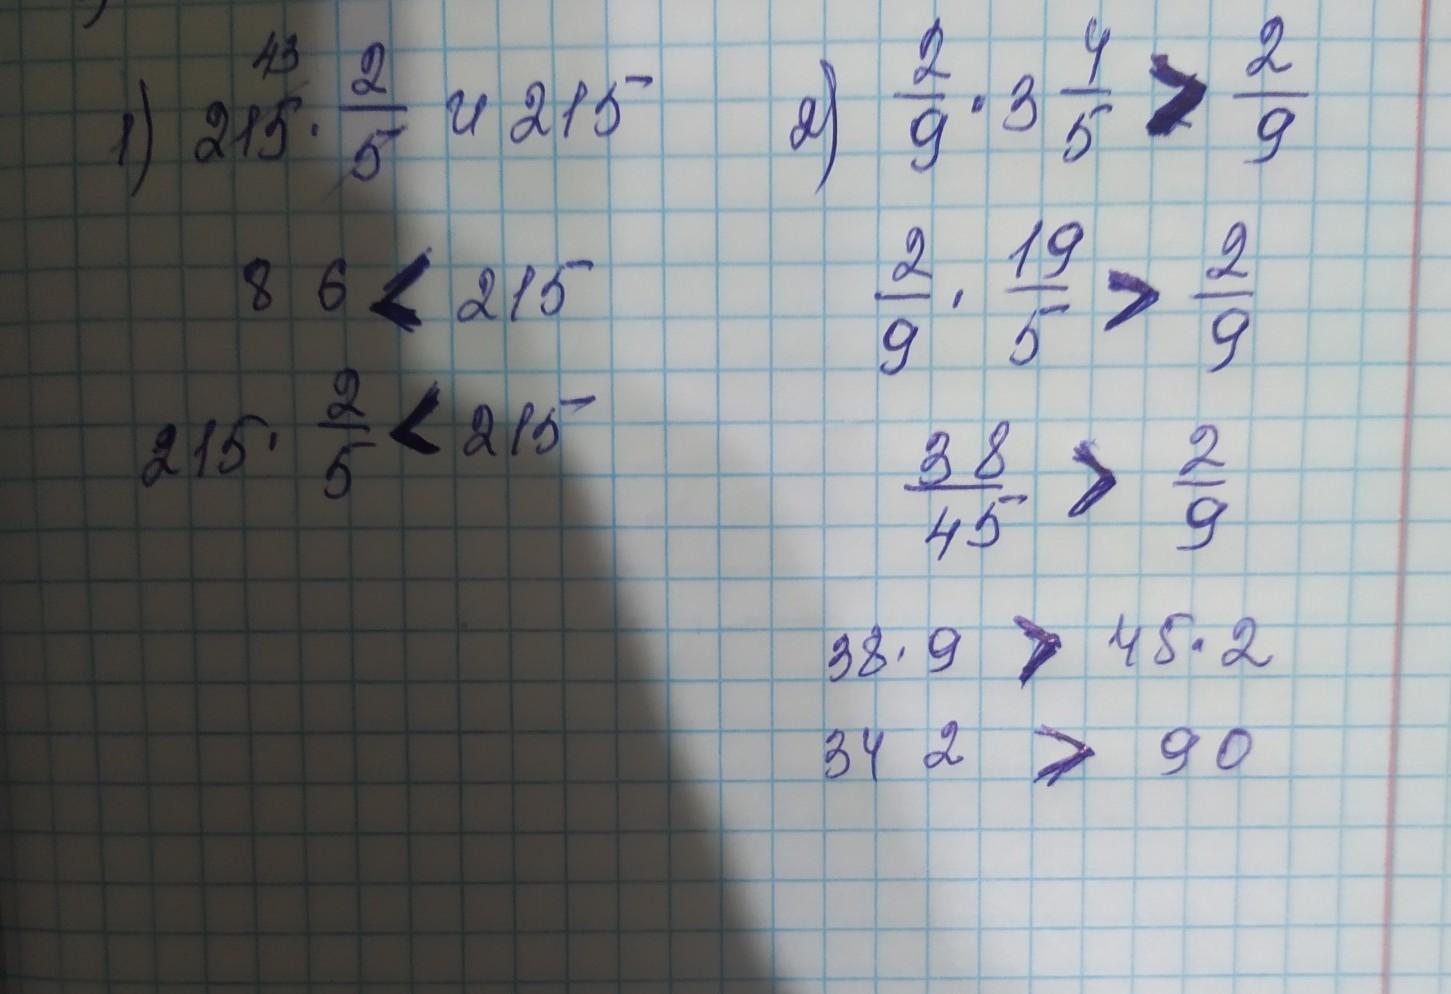 1) 215 · 2/5 и 215
43
86 < 215
215 · 2/5 < 215
2) 2/9 · 3 4/5 > 2/9
2/9 · 19/5 > 2/9
38/45 > 2/9
38 · 9 > 45 · 2
342 > 90